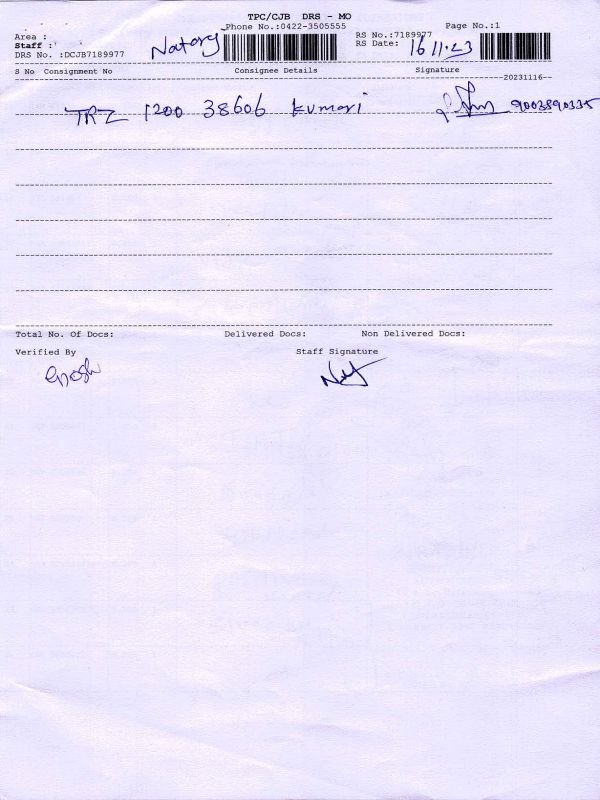 TPC/CJB DRS - MO
Phone No.:0422-3505555 Page No.:1
Area :
Staff : RS No.:7189977
DRS No. :DCJB7189977 RS Date: 16 11.23
S No Consignment No Consignee Details Signature
--20231116--
TRZ 1200 38606 kumari 9003890335
Total No. Of Docs: Delivered Docs: Non Delivered Docs:
Verified By Staff Signature